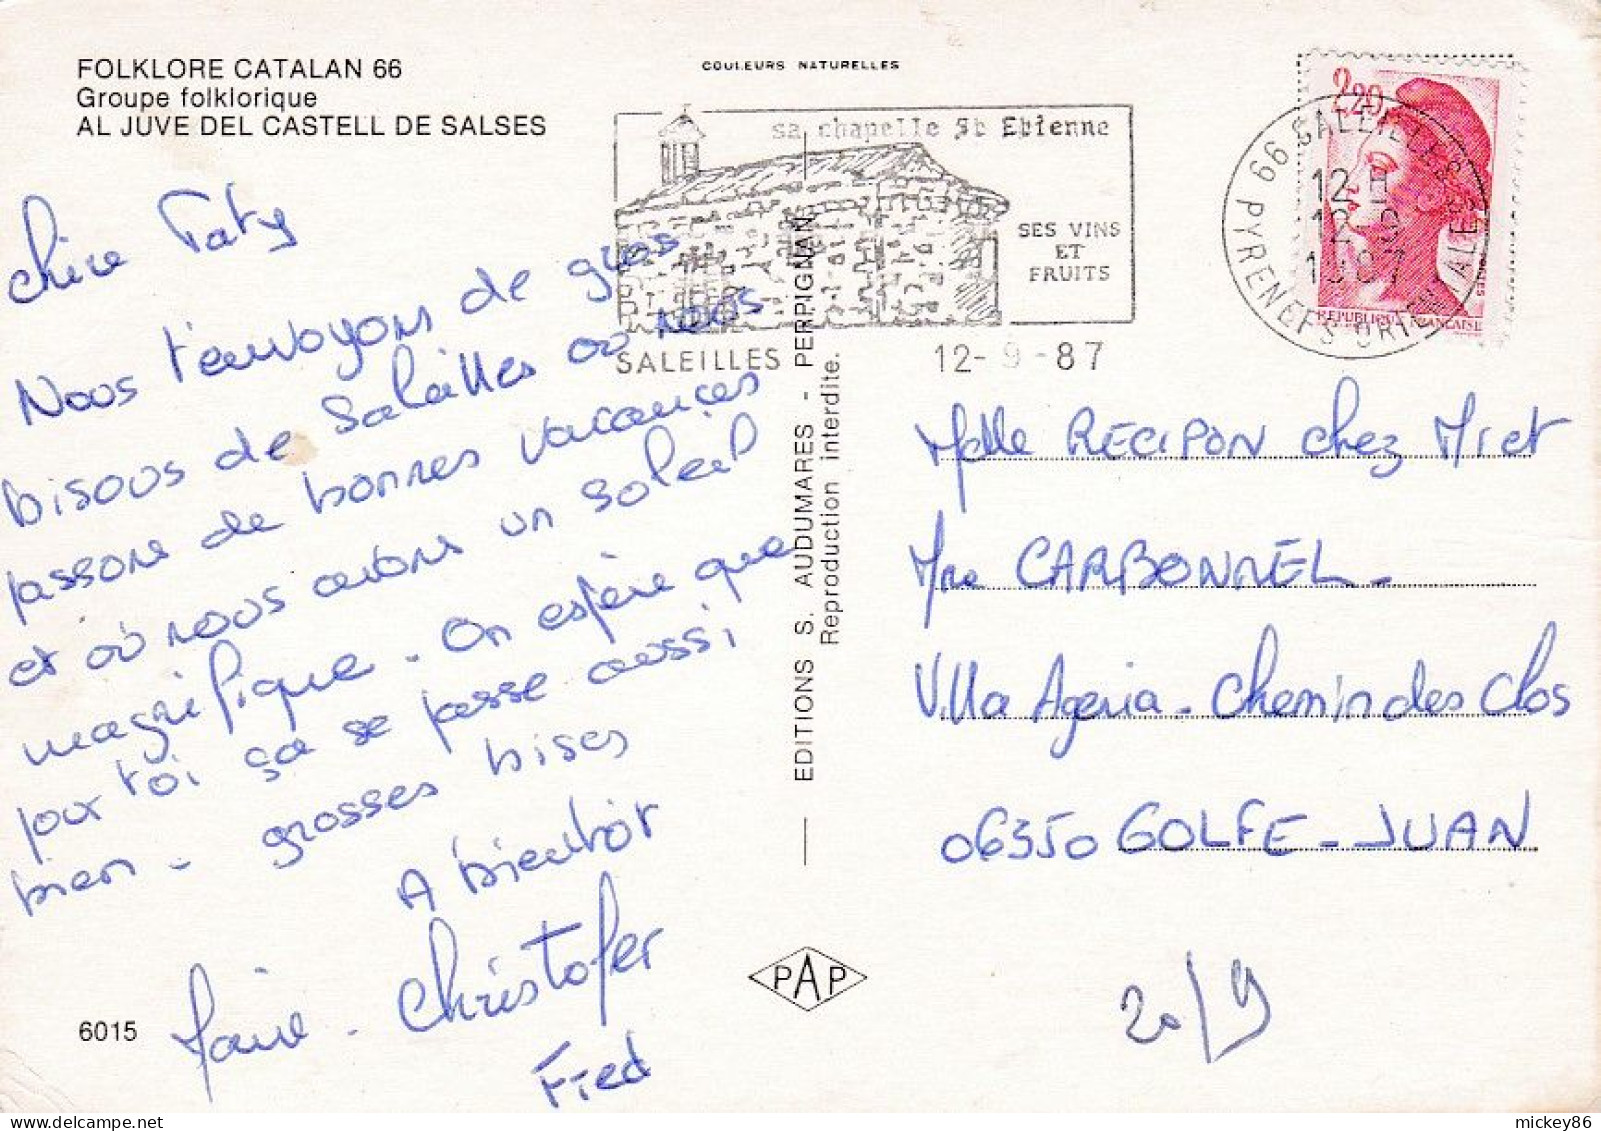 FOLKLORE CATALAN 66
Groupe folklorique
AL JUVE DEL CASTELL DE SALSES
COULEURS NATURELLES
sa chapelle St Etienne
SES VINS
ET
FRUITS
SALEILLES
12-9-87
66 SALEILLES
PYRENEES ORIENTALES
12 H
12
1987
2,20
REPUBLIQUE FRANÇAISE
Chère Taty
Nous t'envoyons de gros
bisous de Saleilles où nous
passons de bonnes vacances
et où nous avons un soleil
magnifique. On espère que
pour toi ça se passe aussi
bien - grosses bises
A bientôt
Christofer
Fred
EDITIONS S. AUDUMARES - PERPIGNAN
Reproduction interdite.
Melle RECIPON chez Mr et
Mme CARBONNEL -
Villa Ageria - Chemin des Clos
06350 GOLFE-JUAN
20/9
PAP
6015
mickey86